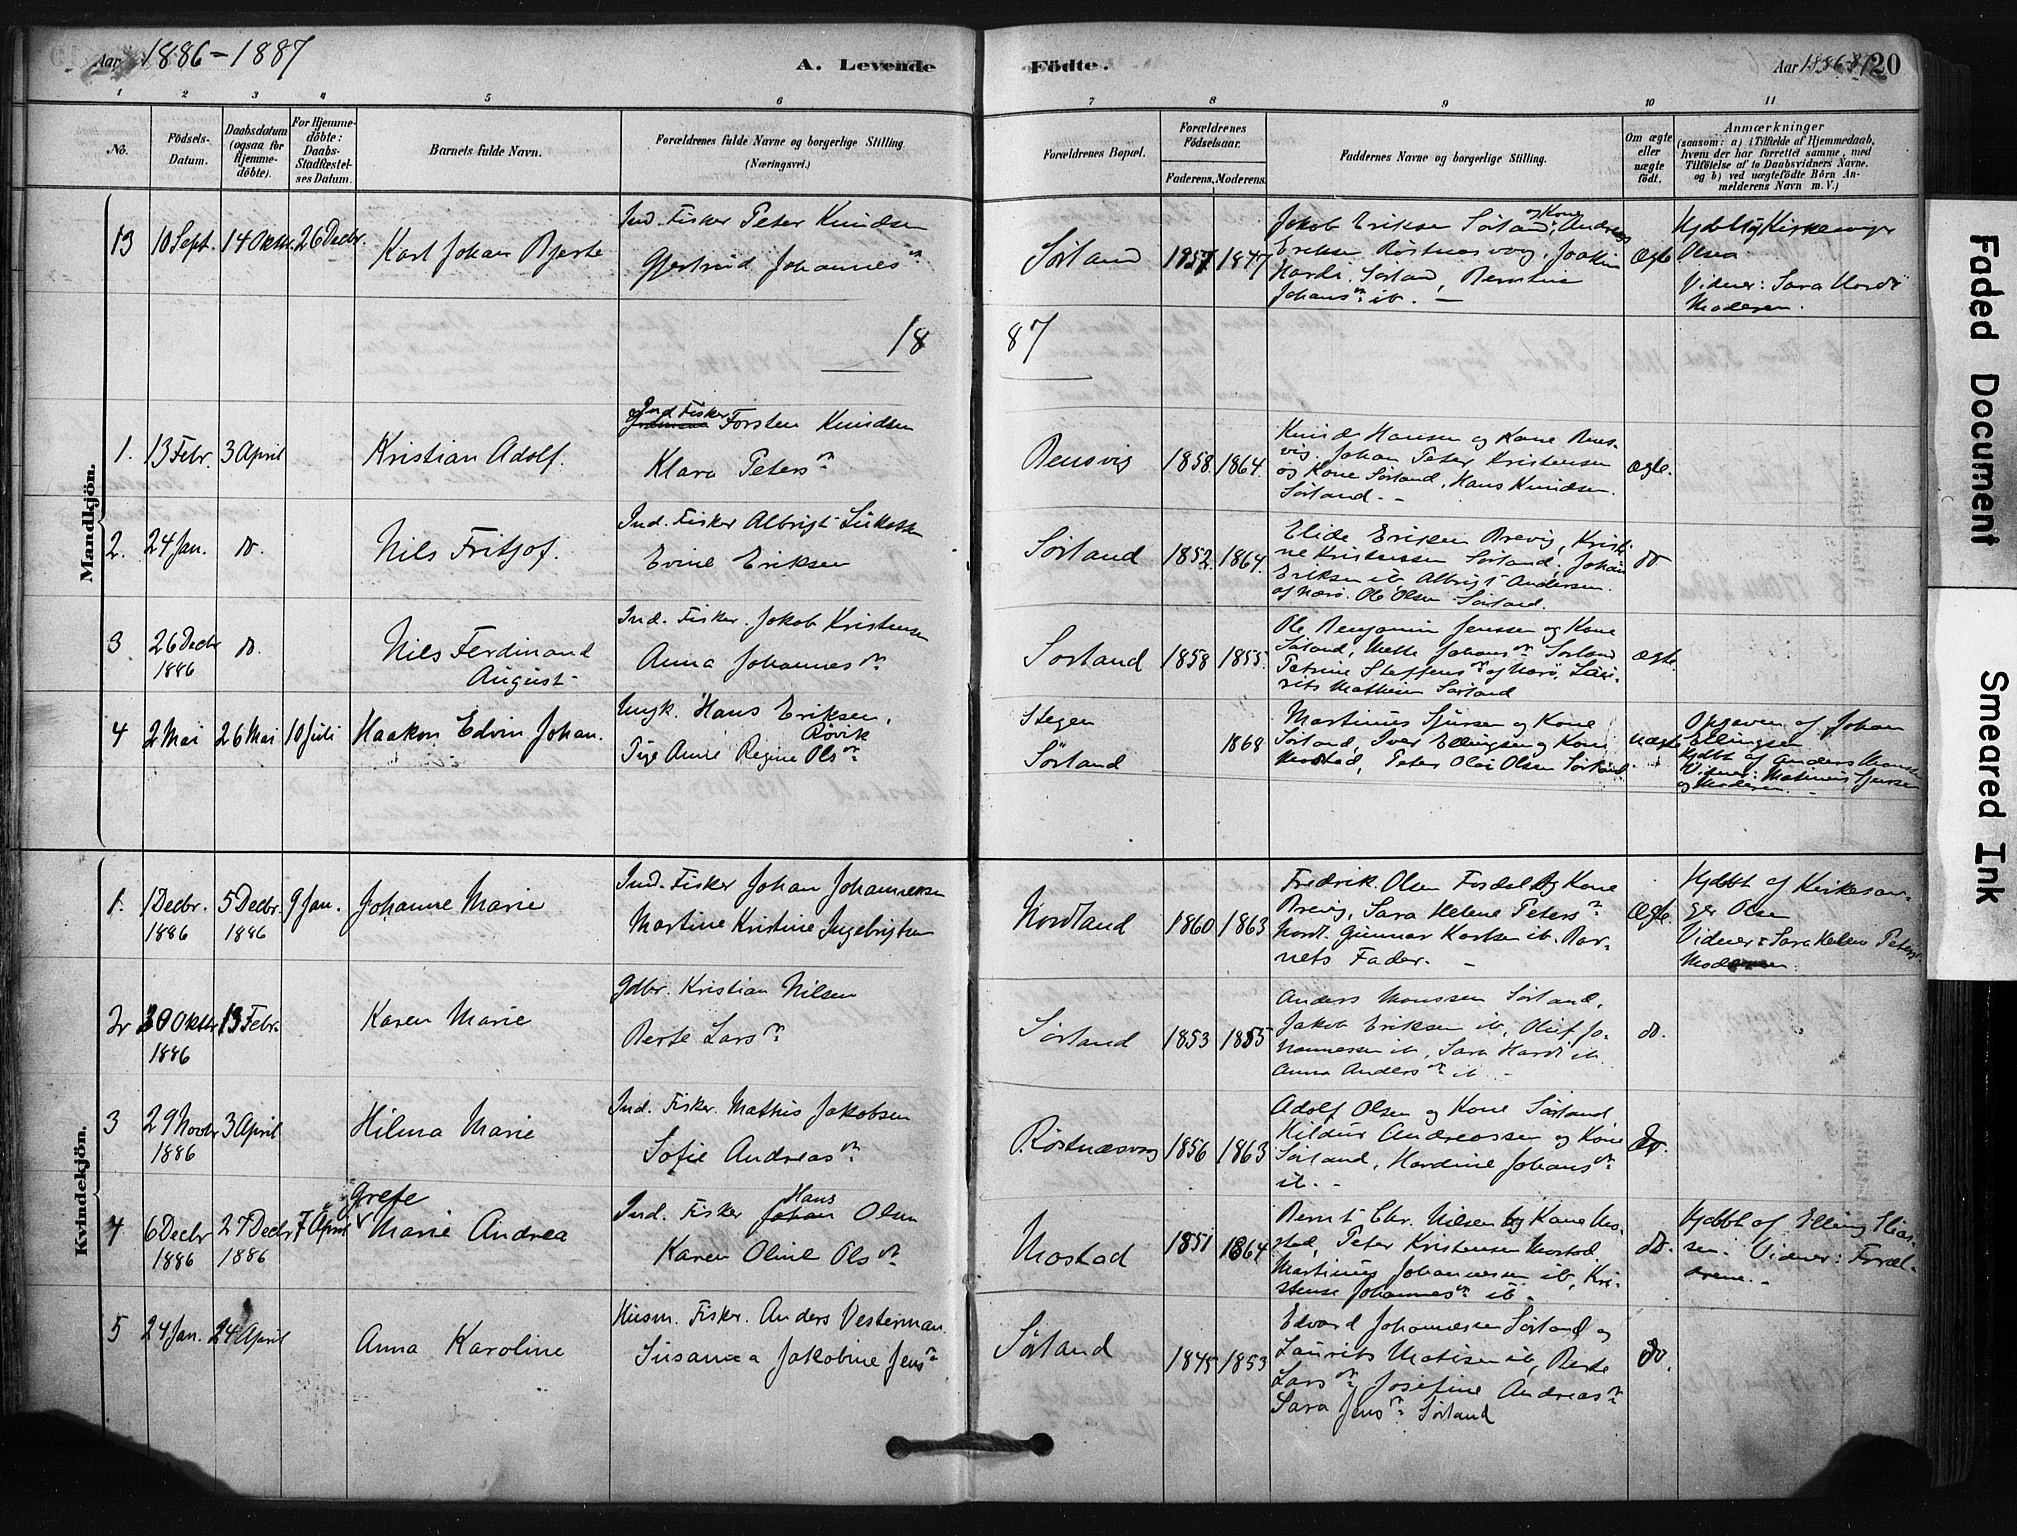 Aar 1886-1887
A. Levende
Födte.
Aar 1886-87 20
1 2 3 4 5 6 7 8 9 10 11
No.
Födsels-Datum.
Daabsdatum (ogsaa for Hjemme-döbte).
For Hjemme-döbte: Daabs-Stadfæstel-ses Datum.
Barnets fulde Navn.
Forældrenes fulde Navne og borgerlige Stilling. (Næringsvei.)
Forældrenes Bopæl.
Forældrenes Födselsaar.
Faderens. Moderens.
Faddernes Navne og borgerlige Stilling.
Om ægte eller uægte födt.
Anmærkninger
(saasom: a) i Tilfælde af Hjemmedaab,
hvem der har forrettet samme, med
Tilföielse af to Daabsvidners Navne.
og b) ved uægtefödte Börn An-
melderens Navn m.V.)
Mandkjön.
13 10 Sept. 14 Oktbr. 26 Decbr. Karl Johan Bjerke
Ind. Fisker Peter Knudsen
Gjertrud Johannesdn
Sörland 1857 1847
Jakob Eriksen Sörland og Kone, Andreas
Eriksen Röstnæsvaag, Joakim
Hardi, Sörland, Berntine
Johansdn ib. —
Ægte
Kirkesanger
Olsen
Vidner: Sara Hardi
Moderen.
18 87
1. 13 Febr. 3 April Kristian Adolf.
Ind. Fisker Torsten Knudsen
Klara Petersdn
Rensvig 1858. 1864.
Knud Hansen og Kone Rens-
vig. Johan Peter Kristensen
og Kone Sörland, Hans Knudsen
Sörland. -
Ægte.
2. 24 Jan. do. Nils Fritjof.
Ind. Fisker Albrigt
Evine Eriksen
Sörland 1852. 1864.
Elide Eriksen Brevig, Kristi-
ne Kristensen Sörland, Johan
Eriksen ib Albrigt Andersen
af Værö. Ole Olsen Sörland.
do
3 26 Decbr 1886 do. Nils Ferdinand August
Ind. Fisker. Jakob Kristensen
Anna Johannesdn
Sörland 1858 1855.
Ole Benjamin Jenssen og Kone
Sörland, Mette Johansdn Sörland
Petrine Steffensdn af Værö, Lau-
rits Mathisen Sörland
Ægte.
4 2 Mai 26 Mai 10 Juli Haakon Edvin Johan.
Ungk. Hans Eriksen, Rövik
Pige Anne Regine Olsdn
Stegen
Sörland 1868
Martinus Sjursen og Kone
Sörland, Iver Ellingsen og Kone
Mostad, Peter Olai Olsen Sörland
Uægte
Opgiven af Johan
Ellingsen
Hjdbt af Anders Monsen
Vidner: Matinus Sjursen
og Moderen. -
Kvindekjön.
1. 1 Decbr. 1886 5 Decbr 1886 9 Jan. Johanne Marie
Ind. Fisker Johan Johannessen
Martine Kristine Ingebrigtsen
Nordland 1860 1863
Fredrik Olsen Fordal og Kone
Brevig, Sara Helene Petersdn
Nordl. Gunnar Karlsen ib. Bar-
nets Fader. —
Ægte.
Hjdbt af Kirkesan-
ger Olsen
Vidner: Sara Helene Petersdn
Moderen.
2 30 Oktbr 1886 13 Febr. Karen Marie
Gdbr. Kristian Nilsen
Berte Larsdn
Sörland 1853 1855
Anders Monssen Sörland,
Jakob Eriksen ib, Oluf Jo-
hannessen ib, Sara Hardi ib
Anna Andersdn ib -
do.
3 29 Novbr 1886 3 April Hilma Marie
Ind. Fisker. Mathis Jakobsen
Sofie Andreasdn
Röstnæsvaag 1856 1863
Adolf Olsen og Kone Sörland
Hildur Andreassen og Kone
Sörland, Hardine Johansdn
ib. -
do.
4 6 Decbr 1886 27 Decbr 1886 7 April Grete Marie Andrea
Ind. Fisker Johan Hans Olsen
Karen Oline Olsdn
Mostad 1851 1864
Bernt Chr. Nilsen og Kone Mo-
stad, Peter Kristensen Mostad,
Martinus Johannessen ib, Kri-
stense Johannesdn ib.
do.
Hjdbt af Elling Elias-
sen. Vidner: Foræl-
drene. -
5 24 Jan. 24 April Anna Karoline
Husm. Fisker. Anders Vesterman
Susanna Jakobine Jensdn
Sörland 1845 1853
Edvard Johannessen Sörland, og
Laurits Matisen ib, Berte
Larsdn Josefine Andreasdn
Sara Jensdn Sörland
do.
Faded Document
Smeared Ink